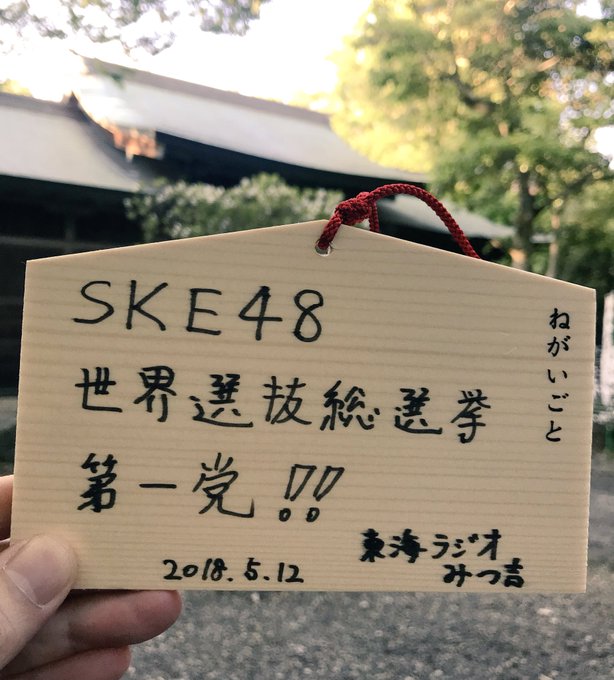 ねがいごと
SKE48
世界選抜総選挙
第一党!!
東海ラジオ
みつ吉
2018.5.12